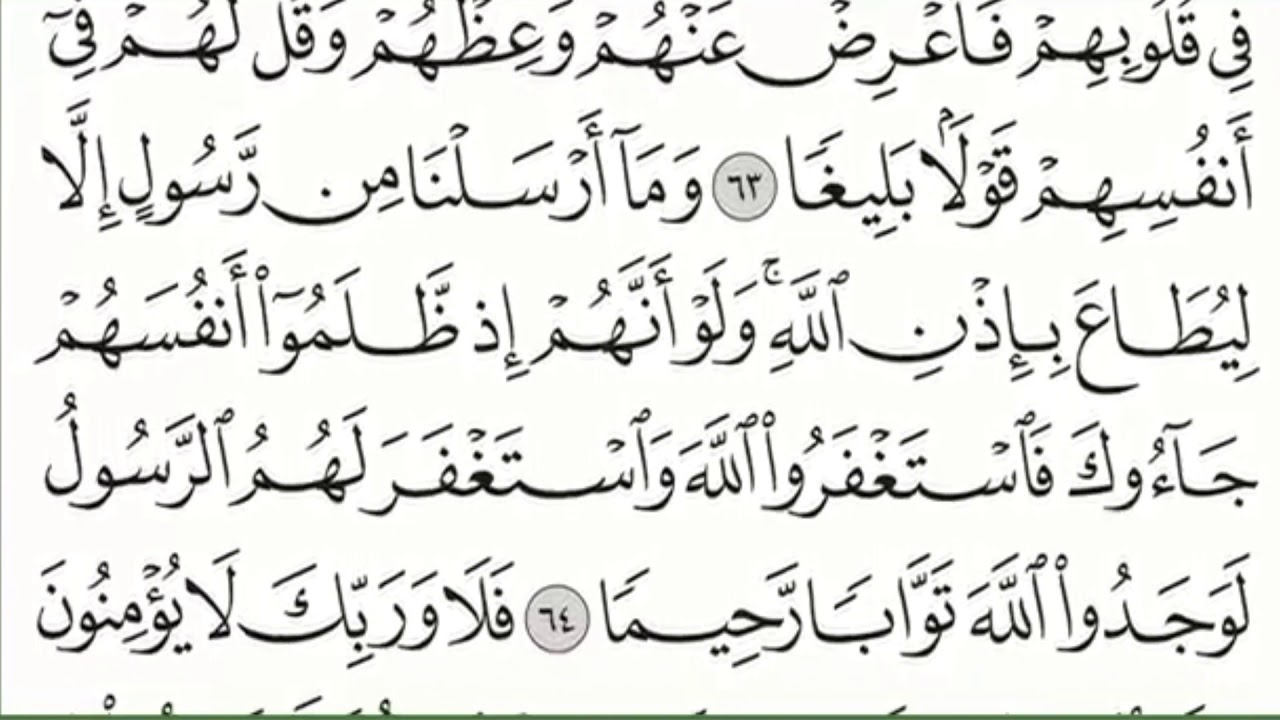 فِي قُلُوبِهِمۡ فَأَعۡرِضۡ عَنۡهُمۡ وَعِظۡهُمۡ وَقُل لَّهُمۡ فِيٓ
أَنفُسِهِمۡ قَوۡلَۢا بَلِيغٗا ٦٣ وَمَآ أَرۡسَلۡنَا مِن رَّسُولٍ إِلَّا
لِيُطَاعَ بِإِذۡنِ ٱللَّهِۚ وَلَوۡ أَنَّهُمۡ إِذ ظَّلَمُوٓاْ أَنفُسَهُمۡ
جَآءُوكَ فَٱسۡتَغۡفَرُواْ ٱللَّهَ وَٱسۡتَغۡفَرَ لَهُمُ ٱلرَّسُولُ
لَوَجَدُواْ ٱللَّهَ تَوَّابٗا رَّحِيمٗا ٦٤ فَلَا وَرَبِّكَ لَا يُؤۡمِنُونَ